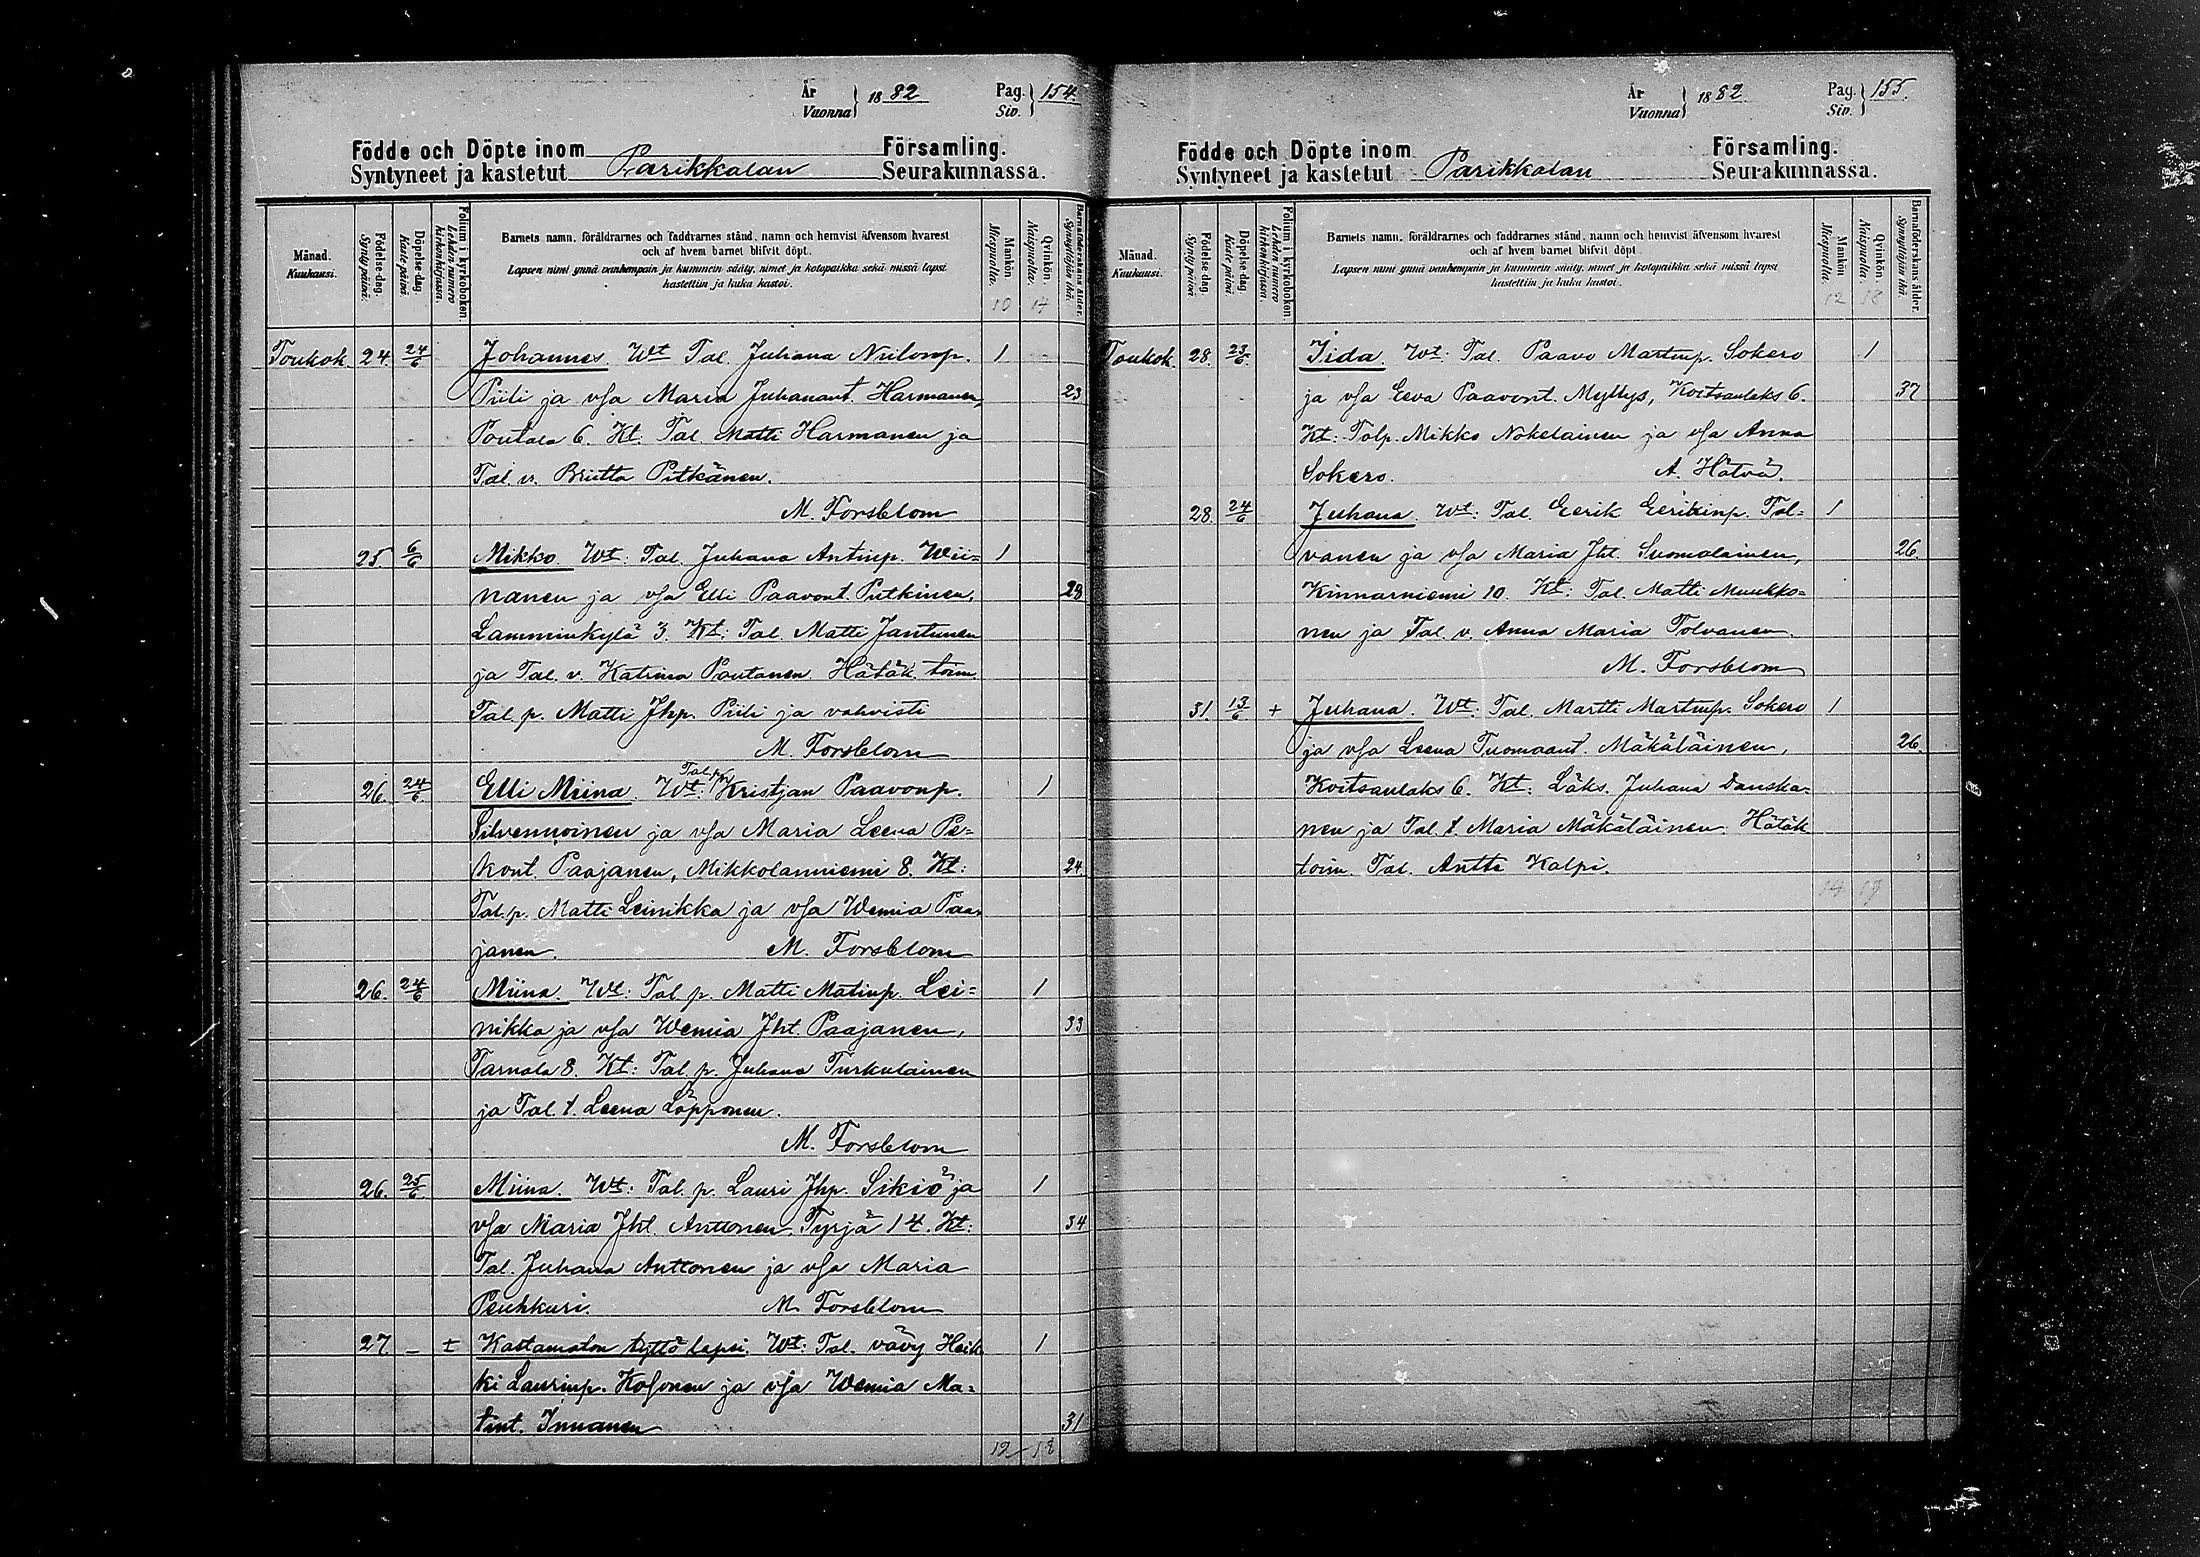 År
Vuonna } 1882 Pag.
Siv. } 154.
Födde och Döpte inom Församling.
Syntyneet ja kastetut Parikkalan Seurakunnassa.
Månad.
Kuukausi.
Födelse-dag.
Syntymäpäivä.
Döpelse-dag.
Kaste päivä.
Folium i kyrkoboken.
Lehden numero
kirkonkirjassa.
Barnets namn, föräldrarnes och faddrarnes stånd, namn och hemvist äfvensom hvarest
och af hvem barnet blifvit döpt.
Lapsen nimi ynnä vanhempain ja kummein sääty, nimet ja kotopaikka sekä missä lapsi
kastettiin ja kuka kastoi.
Mankön.
Miespuolia.
10
Qvinkön.
Naispuolia.
17
Barnaföderskans ålder.
Synnyttäjän ikä.
Toukok. 24. 24/6 Johannes Wt Tal. Juhana Niilonp. 1
Piili ja vsa Maria Juhanant. Harmanen, 23
Poutala 6. Kt. Tal. Matti Harmanen ja
Tal. v. Briitta Pitkänen.
M. Forsblom
25. 6/6 Mikko Wt: Tal. Juhana Antinp. Wii= 1
nanen ja vsa Elli Paavont. Putkinen, 28
Lamminkylä 3. Kt: Tal. Matti Jantunen
ja Tal. v. Katrina Poutanen. Hätäk. toim.
Tal. p. Matti Jhp. Piili ja vahvisti
M. Forsblom
Tal. p.
26. 24/6 Elli Miina. Wt: Kristjan Paavonp. 1
Silvennoinen ja vsa Maria Leena Pe=
kont. Paajanen, Mikkolanniemi 8. Kt: 24
Tal. p. Matti Leinikka ja vsa Wemia Paa=
janen. M. Forsblom
26. 24/6 Miina. Wt: Tal. p. Matti Matinp. Lei= 1
nikka ja vsa Wemia Jht. Paajanen, 33
Tarnala 8. Kt: Tal. p. Juhana Turkulainen
ja Tal. t. Leena Löpponen.
M. Forsblom
26. 25/6 Miina. Wt: Tal. p. Lauri Jhp. Sikiö ja 1
vsa Maria Jht. Anttonen, Tyrjä 14. Kt: 34
Tal. Juhana Anttonen ja vsa Maria
Peuhkuri. M. Forsblom
27 – ± Kastamaton tyttö lapsi. Wt: Tal. vävy Heik= 1
ki Laurinp. Kosonen ja vsa Wemia Ma=
tint. Innanen 31
12 18
År
Vuonna } 1882 Pag.
Siv. } 155.
Födde och Döpte inom Församling.
Syntyneet ja kastetut Parikkalan Seurakunnassa.
Månad.
Kuukausi.
Födelse-dag.
Syntymäpäivä.
Döpelse-dag.
Kaste päivä.
Folium i kyrkoboken.
Lehden numero
kirkonkirjassa.
Barnets namn, föräldrarnes och faddrarnes stånd, namn och hemvist äfvensom hvarest
och af hvem barnet blifvit döpt.
Lapsen nimi ynnä vanhempain ja kummein sääty, nimet ja kotopaikka sekä missä lapsi
kastettiin ja kuka kastoi.
Mankön.
Miespuolia.
12
Qvinkön.
Naispuolia.
18
Barnaföderskans ålder.
Synnyttäjän ikä.
Toukok. 28. 23/6. Iida Wt: Tal. Paavo Martinp. Sokero 1
ja vsa Eeva Paavont. Myllys, Koitsanlaks 6. 37
Kt: Tolp. Mikko Nokelainen ja vsa Anna
Sokero. A. Hätvä.
28. 24/6 Juhana. Wt: Tal. Eerik Eerikinp. Tol= 1
vanen ja vsa Maria Jht. Suomalainen, 26.
Kinnarniemi 10. Kt: Tal. Matti Muukko=
nen ja Tal. v. Anna Maria Tolvanen.
M. Forsblom
31. 13/6 + Juhana. Wt: Tal. Martti Martinp. Sokero 1
ja vsa Leena Tuomaant. Mäkäläinen, 26.
Koitsanlaks 6. Kt: Läks. Juhana Danska=
nen ja Tal. t. Maria Mäkäläinen. Hätäk
toim. Tal. Antti Kalpi.
14 19